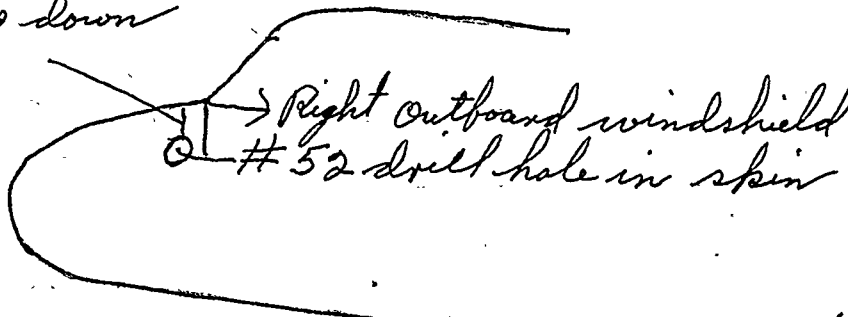 down
Right outboard windshield
#52 drill hole in skin